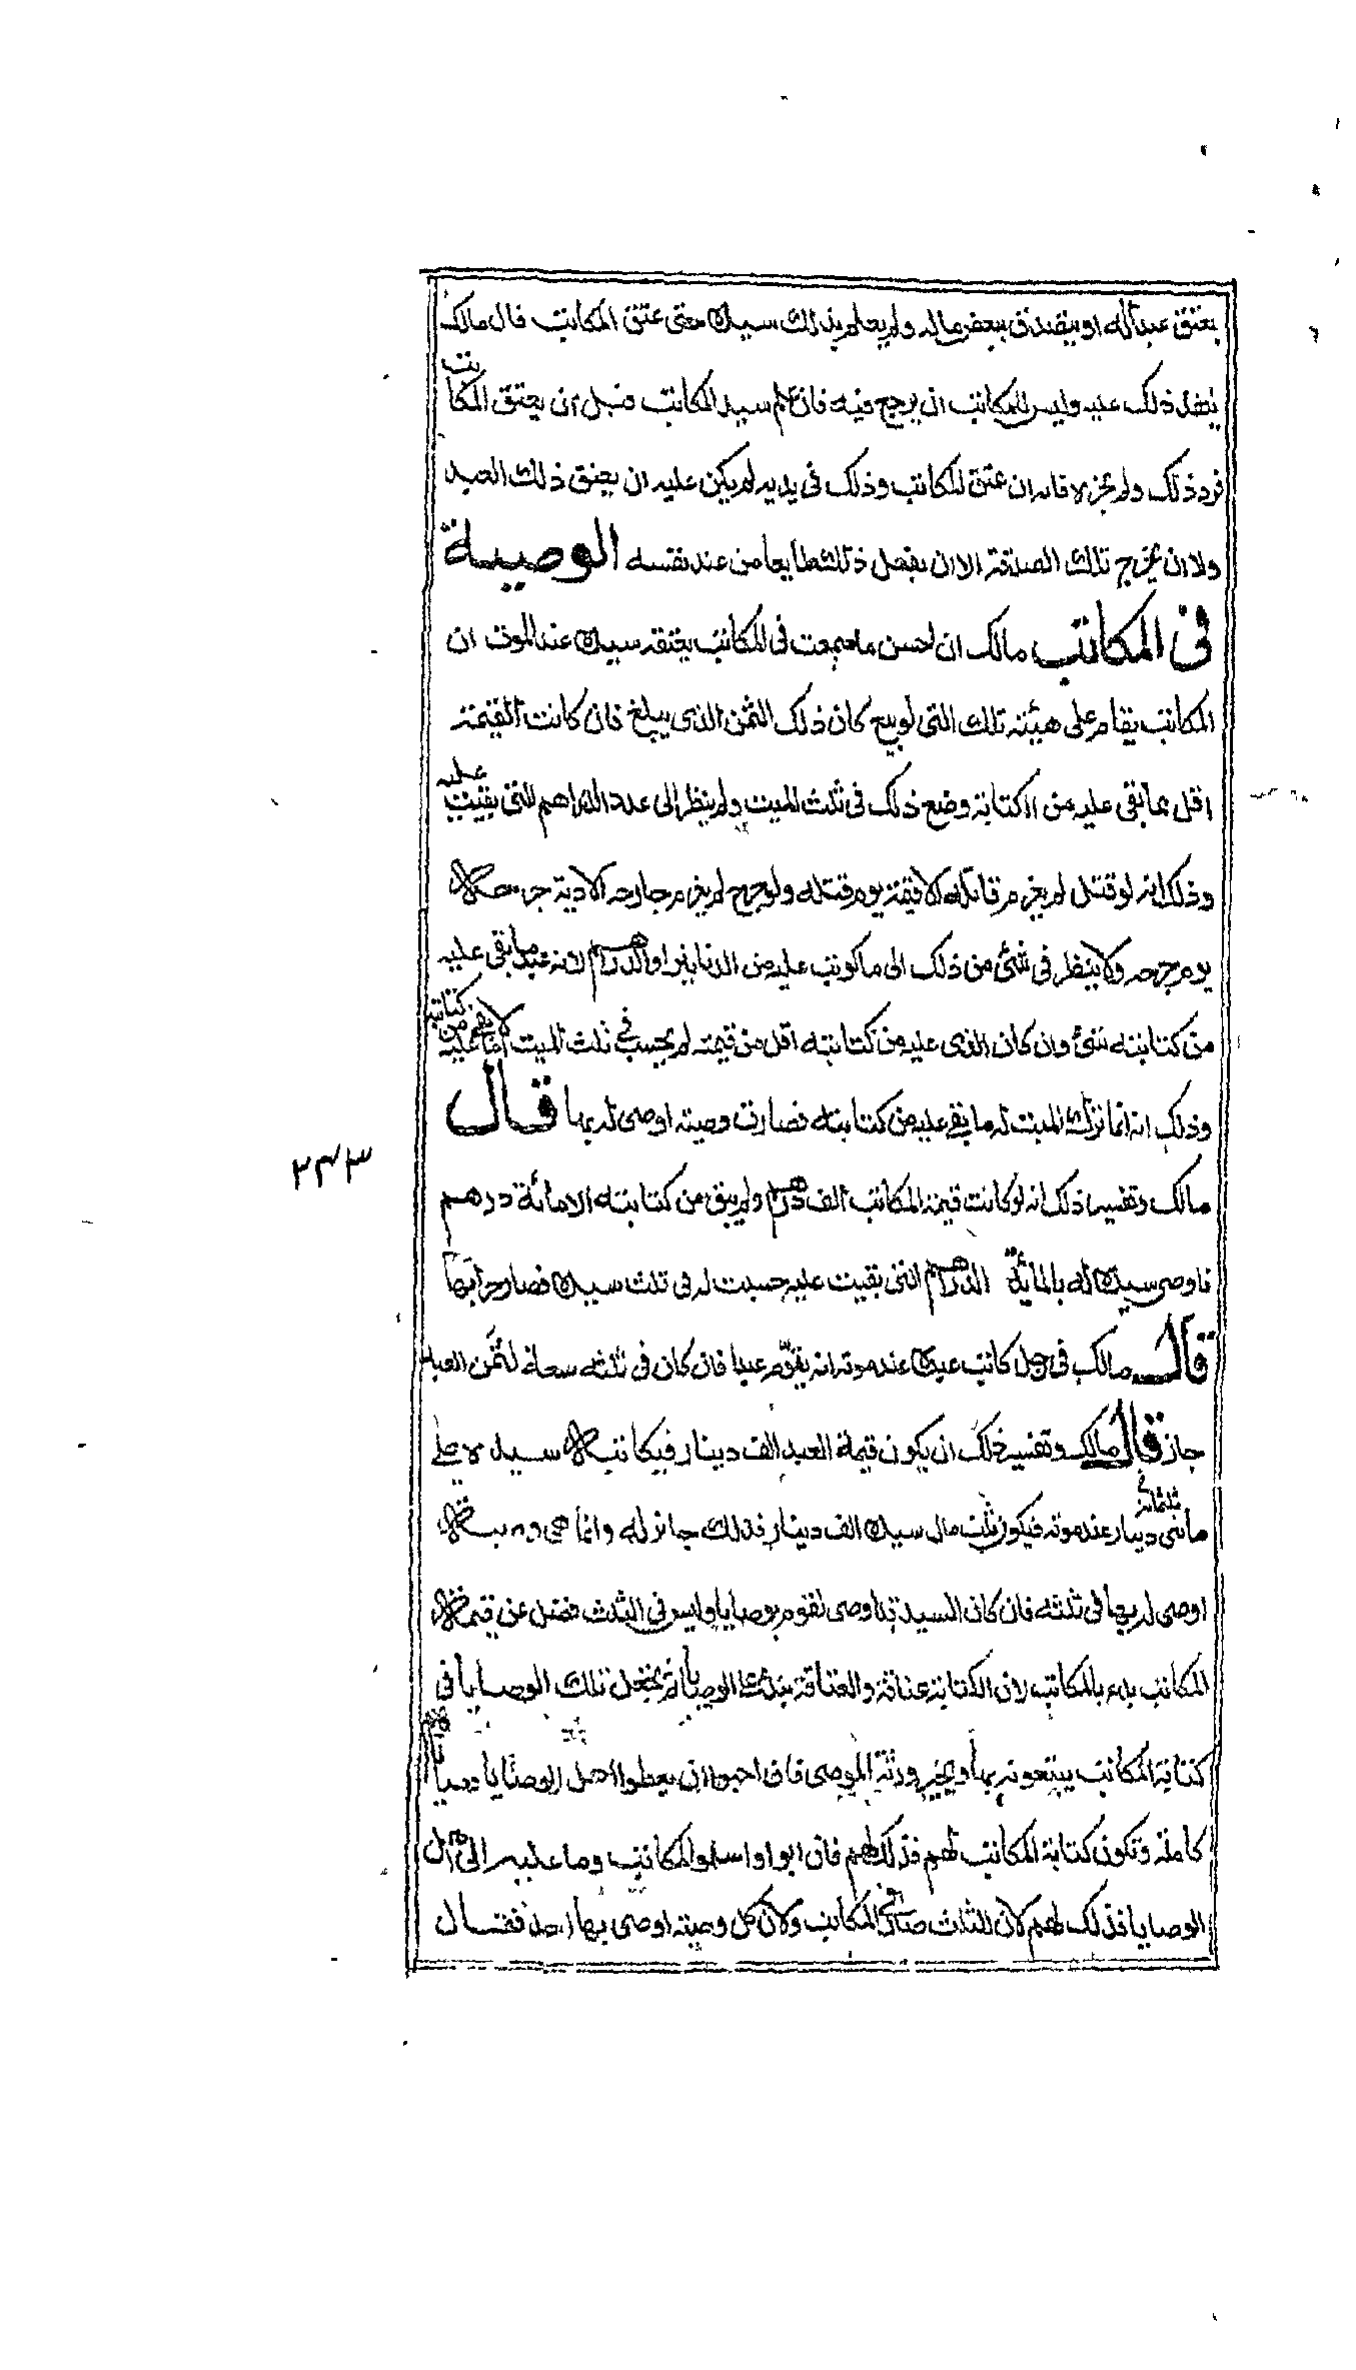 يعتق عبدا له او يتصدق ببعض ماله ولم يعلم بذلك سيده حتى عتق المكاتب قال مالك
ينفذ ذلك عليه وليس للمكاتب ان يرجع فيه فان علم سيد المكاتب قبل ان يعتق المكاتب
فرد ذلك ولم يجزه فانه ان عتق المكاتب وذلك فى يديه لم يكن عليه ان يعتق ذلك العبد
ولا ان يخرج تلك الصدقة الا ان يفعل ذلك طايعا من عند نفسه الوصية
فى المكاتب مالك ان احسن ما سمعت فى المكاتب يعتقه سيده عند الموت ان
المكاتب يقام على هيئته تلك التى لو بيع كان ذلك الثمن الذى يبلغ فان كانت القيمة
اقل مما بقى عليه من الكتابة وضع ذلك فى ثلث الميت ولم ينظر الى عدد الدراهم التى بقيت عليه
وذلك انه لو قتل لم يغرم قاتله الا قيمته يوم قتله ولو جرح لم يغرم جارحه الا دية جرحه
يوم جرحه ولا ينظر فى شئ من ذلك الى ما كوتب عليه من الدنانير او الدراهم لانه عبد ما بقى عليه
من كتابته شئ وان كان الذى عليه من كتابته اقل من قيمته لم يحسب فى ثلث الميت الا ما بقى عليه من كتابته
وذلك انه انما ترك الميت له ما بقى عليه من كتابته فصارت وصية اوصى له بها قال
مالك وتفسير ذلك انه لو كانت قيمة المكاتب الف درهم ولم يبق من كتابته الا مائة درهم
فاوصى سيده له بالمائة الدراهم التى بقيت عليه حسبت له فى ثلث سيده فصار حرا بها
قال مالك فى رجل كاتب عبده عند موته انه يقوّم عبدا فان كان فى ثلثه سعة لثمن العبد
جاز قال مالك وتفسير ذلك ان يكون قيمة العبد الف دينار فيكاتبه سيده على
مائتى دينار عند موته فيكون ثلث مال سيده الف دينار فذلك جائز له وانما هى وصية
اوصى له بها فى ثلثه فان كان السيد قد اوصى لقوم بوصايا وليس فى الثلث فضل عن قيمة
المكاتب بدء بالمكاتب لان الكتابة عتاقة والعتاقة تبدئ على الوصايا ثم تجعل تلك الوصايا فى
كتابة المكاتب يتبعونه بها ويخير ورثة الموصى فان احبوا ان يعطوا اهل الوصايا وصاياهم
كاملة وتكون كتابة المكاتب لهم فذلك لهم فان ابوا واسلموا المكاتب وما عليه الى اهل
الوصايا فذلك لهم لان الثلث صار فى المكاتب ولان كل وصية اوصى بها احد فقال
٢٤٣